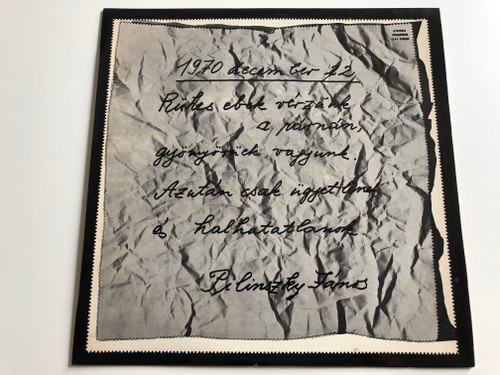 1970 december 22
Rühes ebek vérzünk
a párnán,
gyönyörűek vagyunk.
Azután csak ügyetlenek
és halhatatlanok
Pilinszky János
STEREO